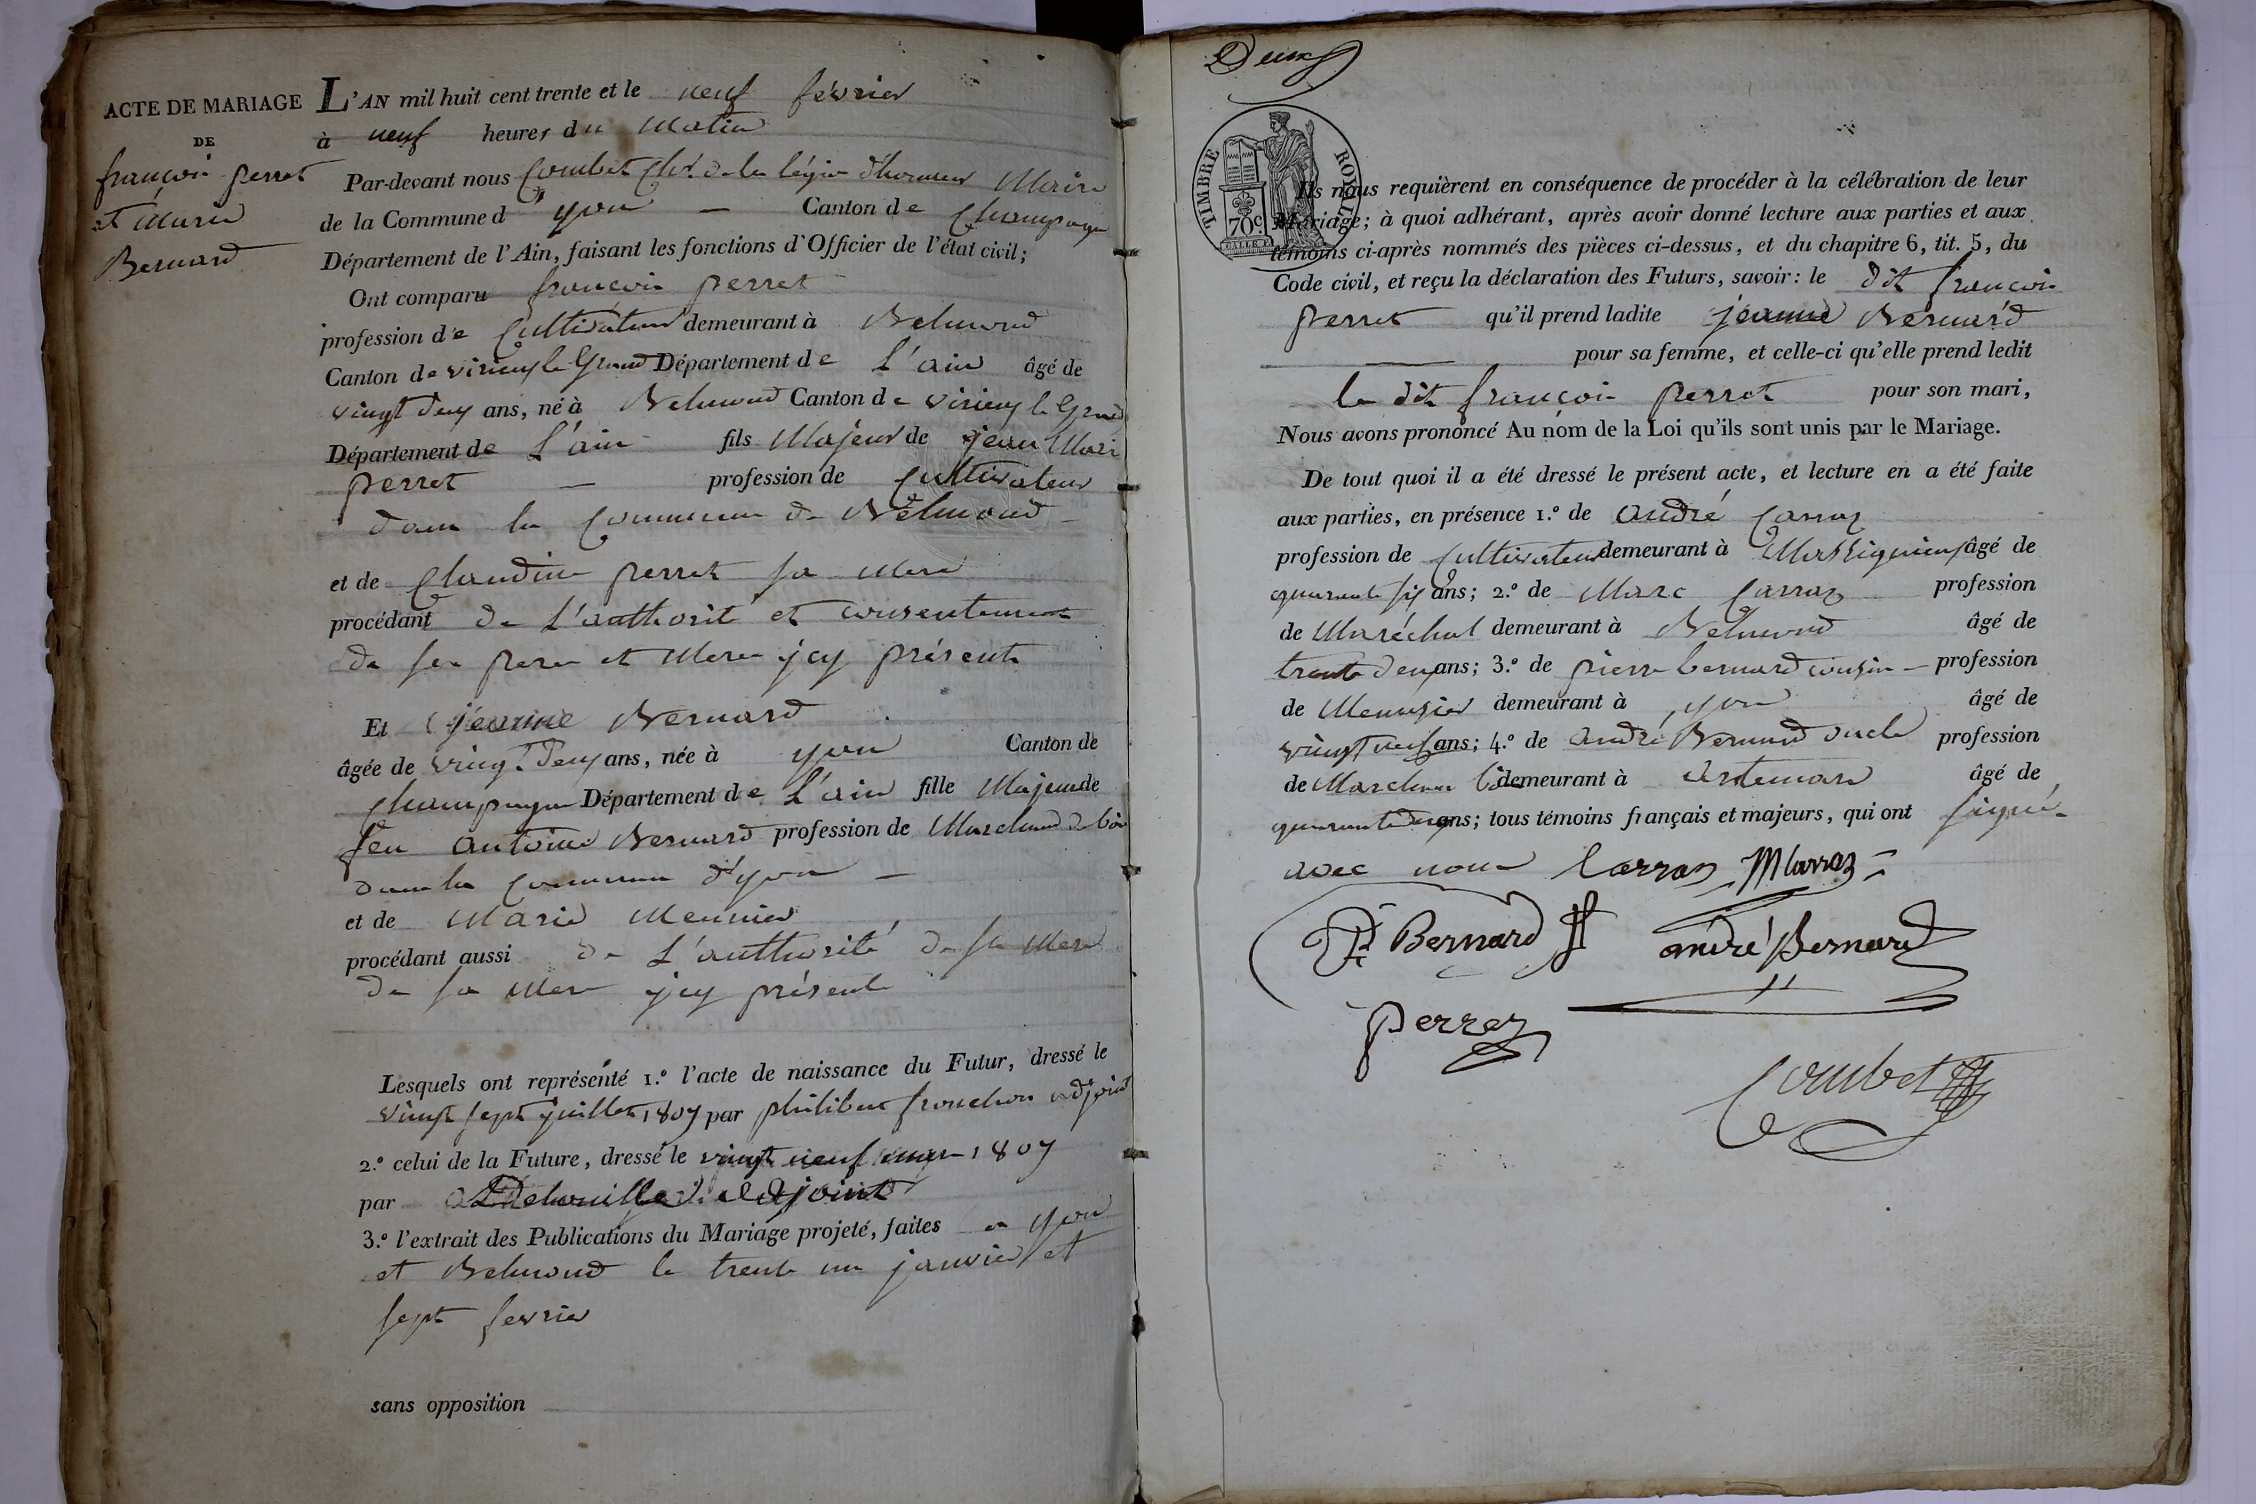 ACTE DE MARIAGE
DE
françois perret
et Marie
Bernard
L'AN mil huit cent trente et le neuf février
à neuf heures du Matin
Par-devant nous Combet Chr. de la légion d'honneur Maire
de la Commune d'yon — Canton de Champagne
Département de l'Ain, faisant les fonctions d'Officier de l'état civil;
Ont comparu françois perret
profession de Cultivateur demeurant à Belmond
Canton de virieux le Grand Département de L'ain âgé de
vingt deux ans, né à Belmond Canton de virieux le Grand
Département de L'ain fils Majeur de jean Mari
perret — profession de Cultivateur
dans la Commune de Belmond
et de Claudine perret sa Mere
procédant de L'authorité et consentement
de ses pere et Mere jcy présents
Et jeanne Bernard
âgée de vingt Deux ans, née à yon Canton de
Champagne Département de L'ain fille Majeure de
feu antoine Bernard profession de Marchand de bois
dans la Commune d'yon —
et de Marie Meunier
procédant aussi de L'authorité de sa Mere
de sa Mere jcy présente
Lesquels ont représenté 1.º l'acte de naissance du Futur, dressé le
vingt sept juillet 1807 par philibert fronchon adjoint
2.º celui de la Future, dressé le vingt neuf mars 1807
par adjoint
3.º l'extrait des Publications du Mariage projeté, faites a yon
et Belmond le trente un janvier et
sept fevrier
sans opposition
Deux
TIMBRE ROYAL
70c.
Ils nous requièrent en conséquence de procéder à la célébration de leur
Mariage; à quoi adhérant, après avoir donné lecture aux parties et aux
témoins ci-après nommés des pièces ci-dessus, et du chapitre 6, tit. 5, du
Code civil, et reçu la déclaration des Futurs, savoir: le dit françois
perret qu'il prend ladite jeanne Bernard
pour sa femme, et celle-ci qu'elle prend ledit
le dit françois perret pour son mari,
Nous avons prononcé Au nom de la Loi qu'ils sont unis par le Mariage.
De tout quoi il a été dressé le présent acte, et lecture en a été faite
aux parties, en présence 1.º de andré Carraz
profession de Cultivateur demeurant à Massignieux âgé de
quarante six ans; 2.º de Marc Carraz profession
de Maréchal demeurant à Belmond âgé de
trente deux ans; 3.º de pierre bernard cousin — profession
de Menusier demeurant à yon âgé de
vingt neuf ans; 4.º de andré Bernard oncle profession
de Marchand bois demeurant à Artemare âgé de
quarante deux ans; tous témoins français et majeurs, qui ont signé
avec nous Carraz MCarraz
Pre Bernard andré Bernard
perret
Combet